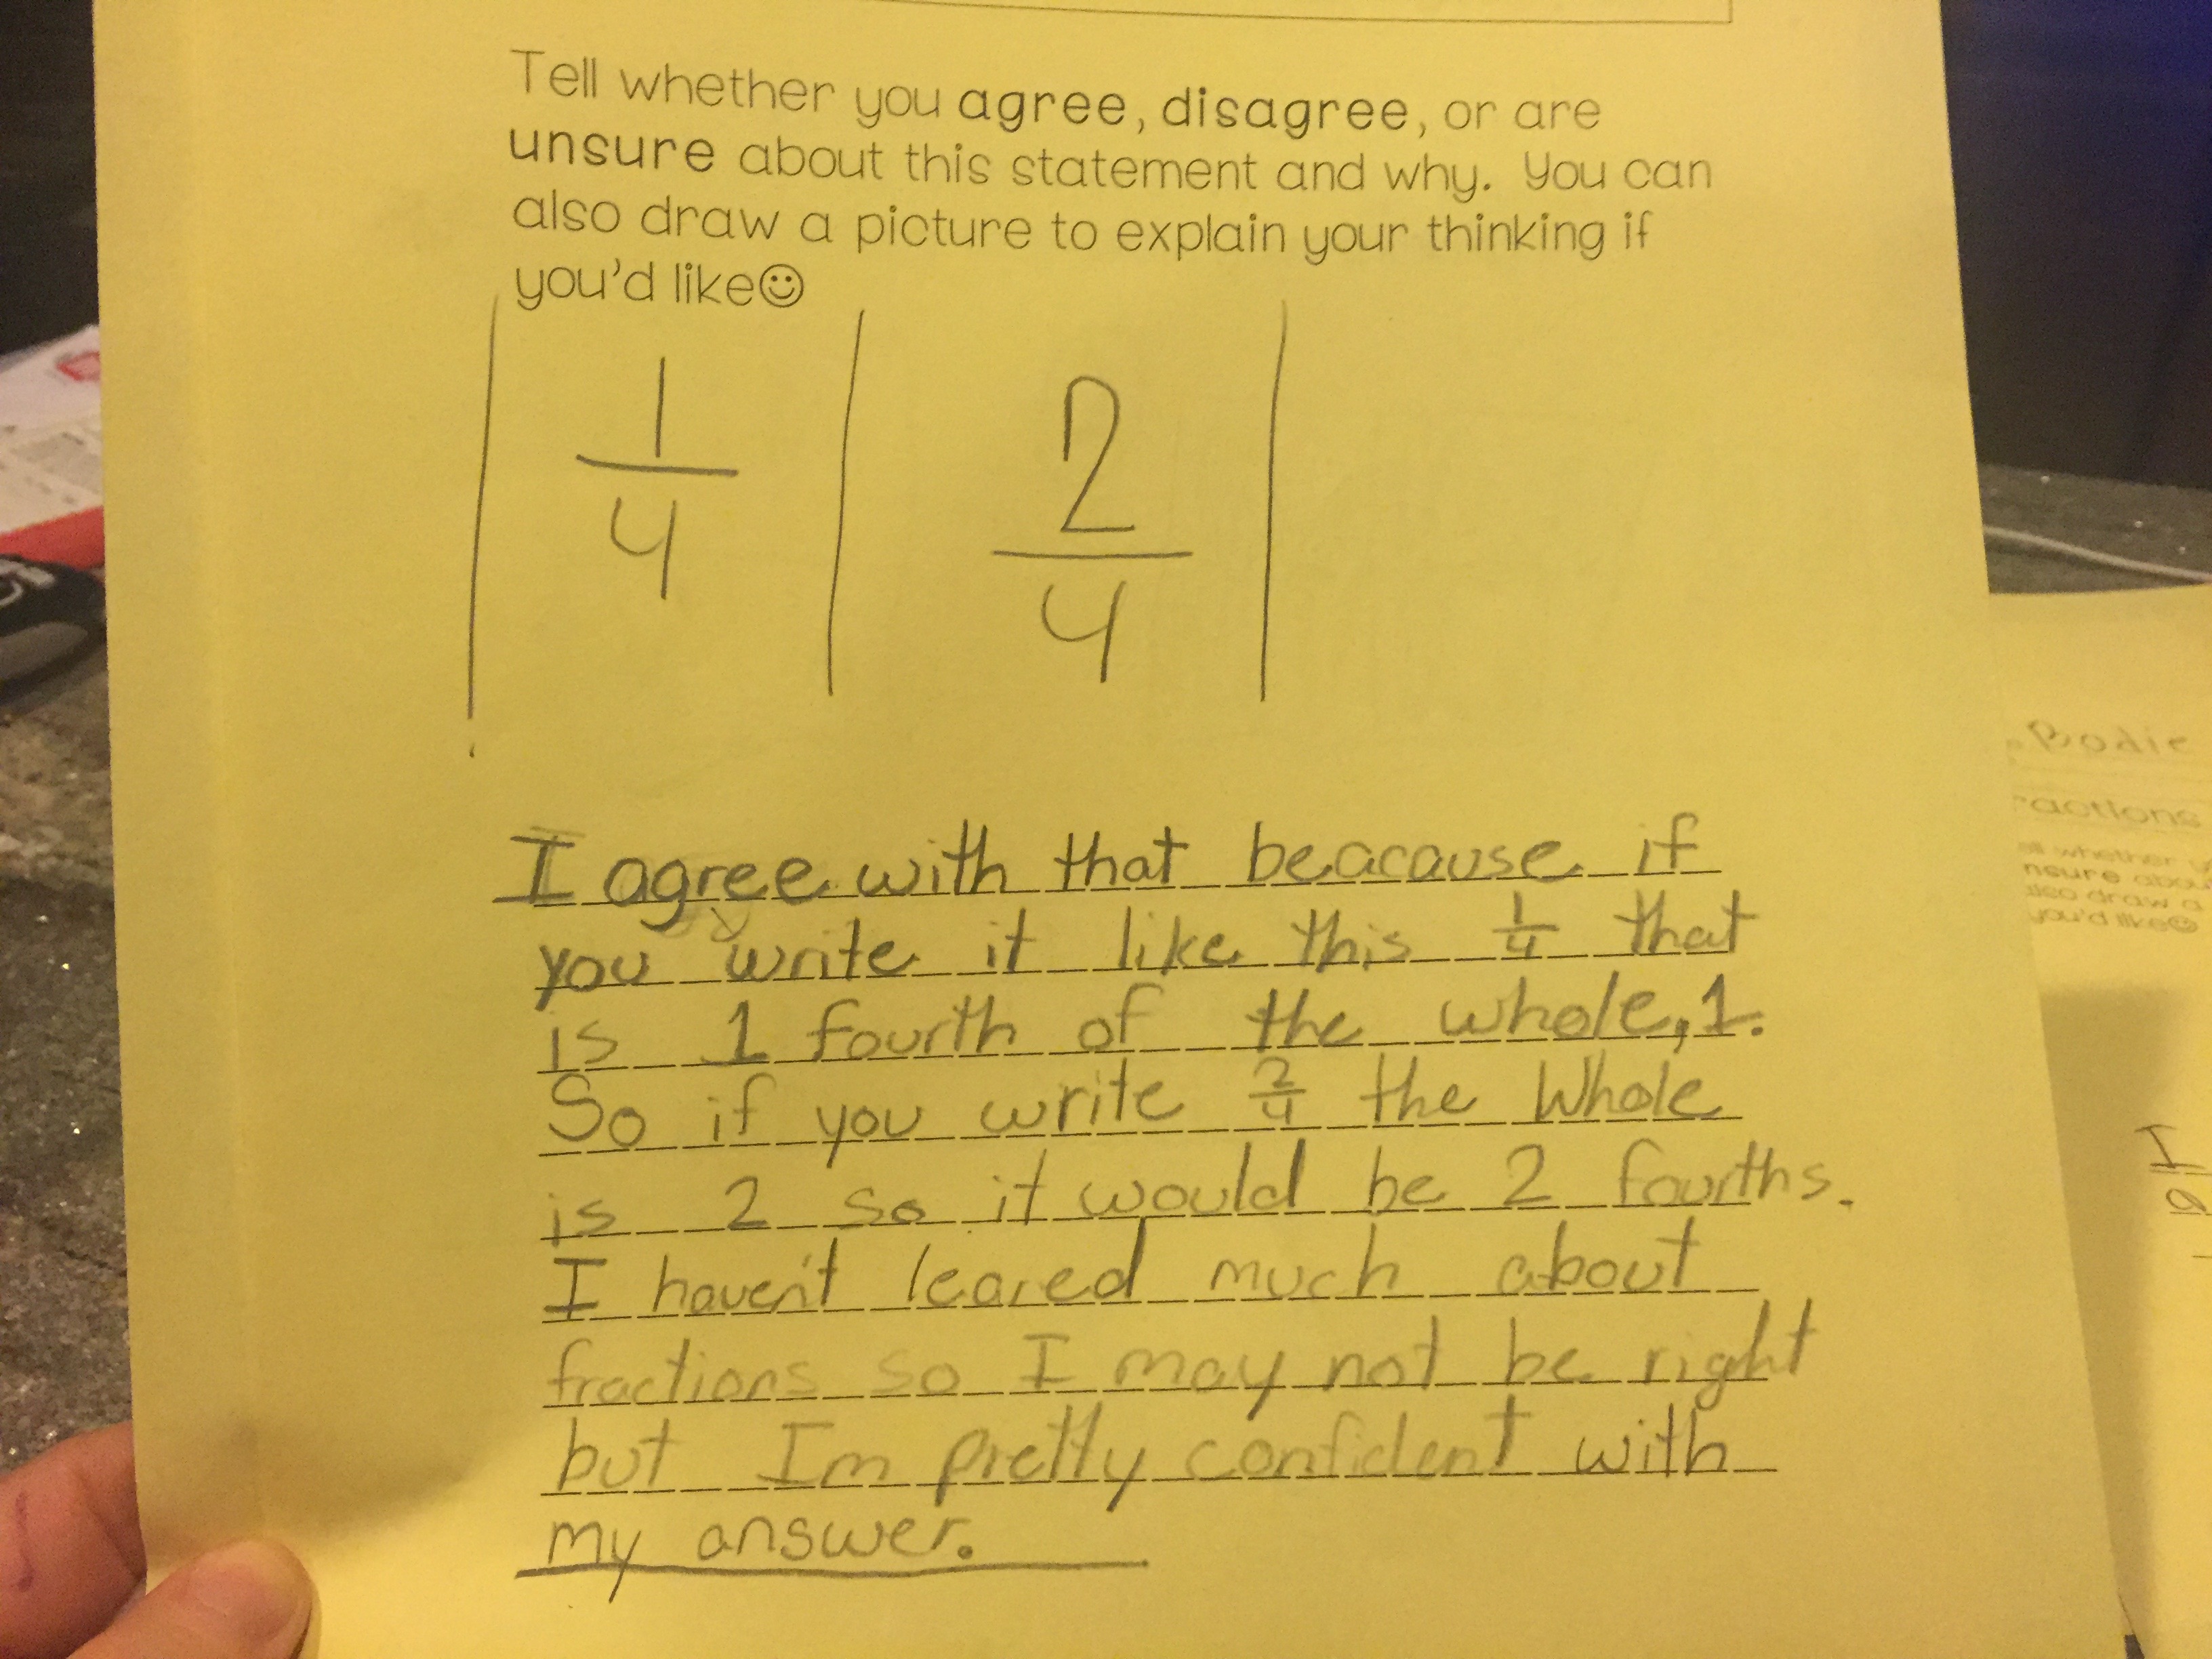 Tell whether you agree, disagree, or are
unsure about this statement and why. You can
also draw a picture to explain your thinking if
you'd like☺
1/4
2/4
I agree with that beacause if
you write it like this 1/4 that
is 1 fourth of the whole, 1.
So if you write 2/4 the Whole
is 2 so it would be 2 fourths.
I haven't leared much about
fractions so I may not be right
but Im pretty confident with
my answer.
Bodie
ractions
whether
nsure abou
also draw a
you'd like☺
I
a